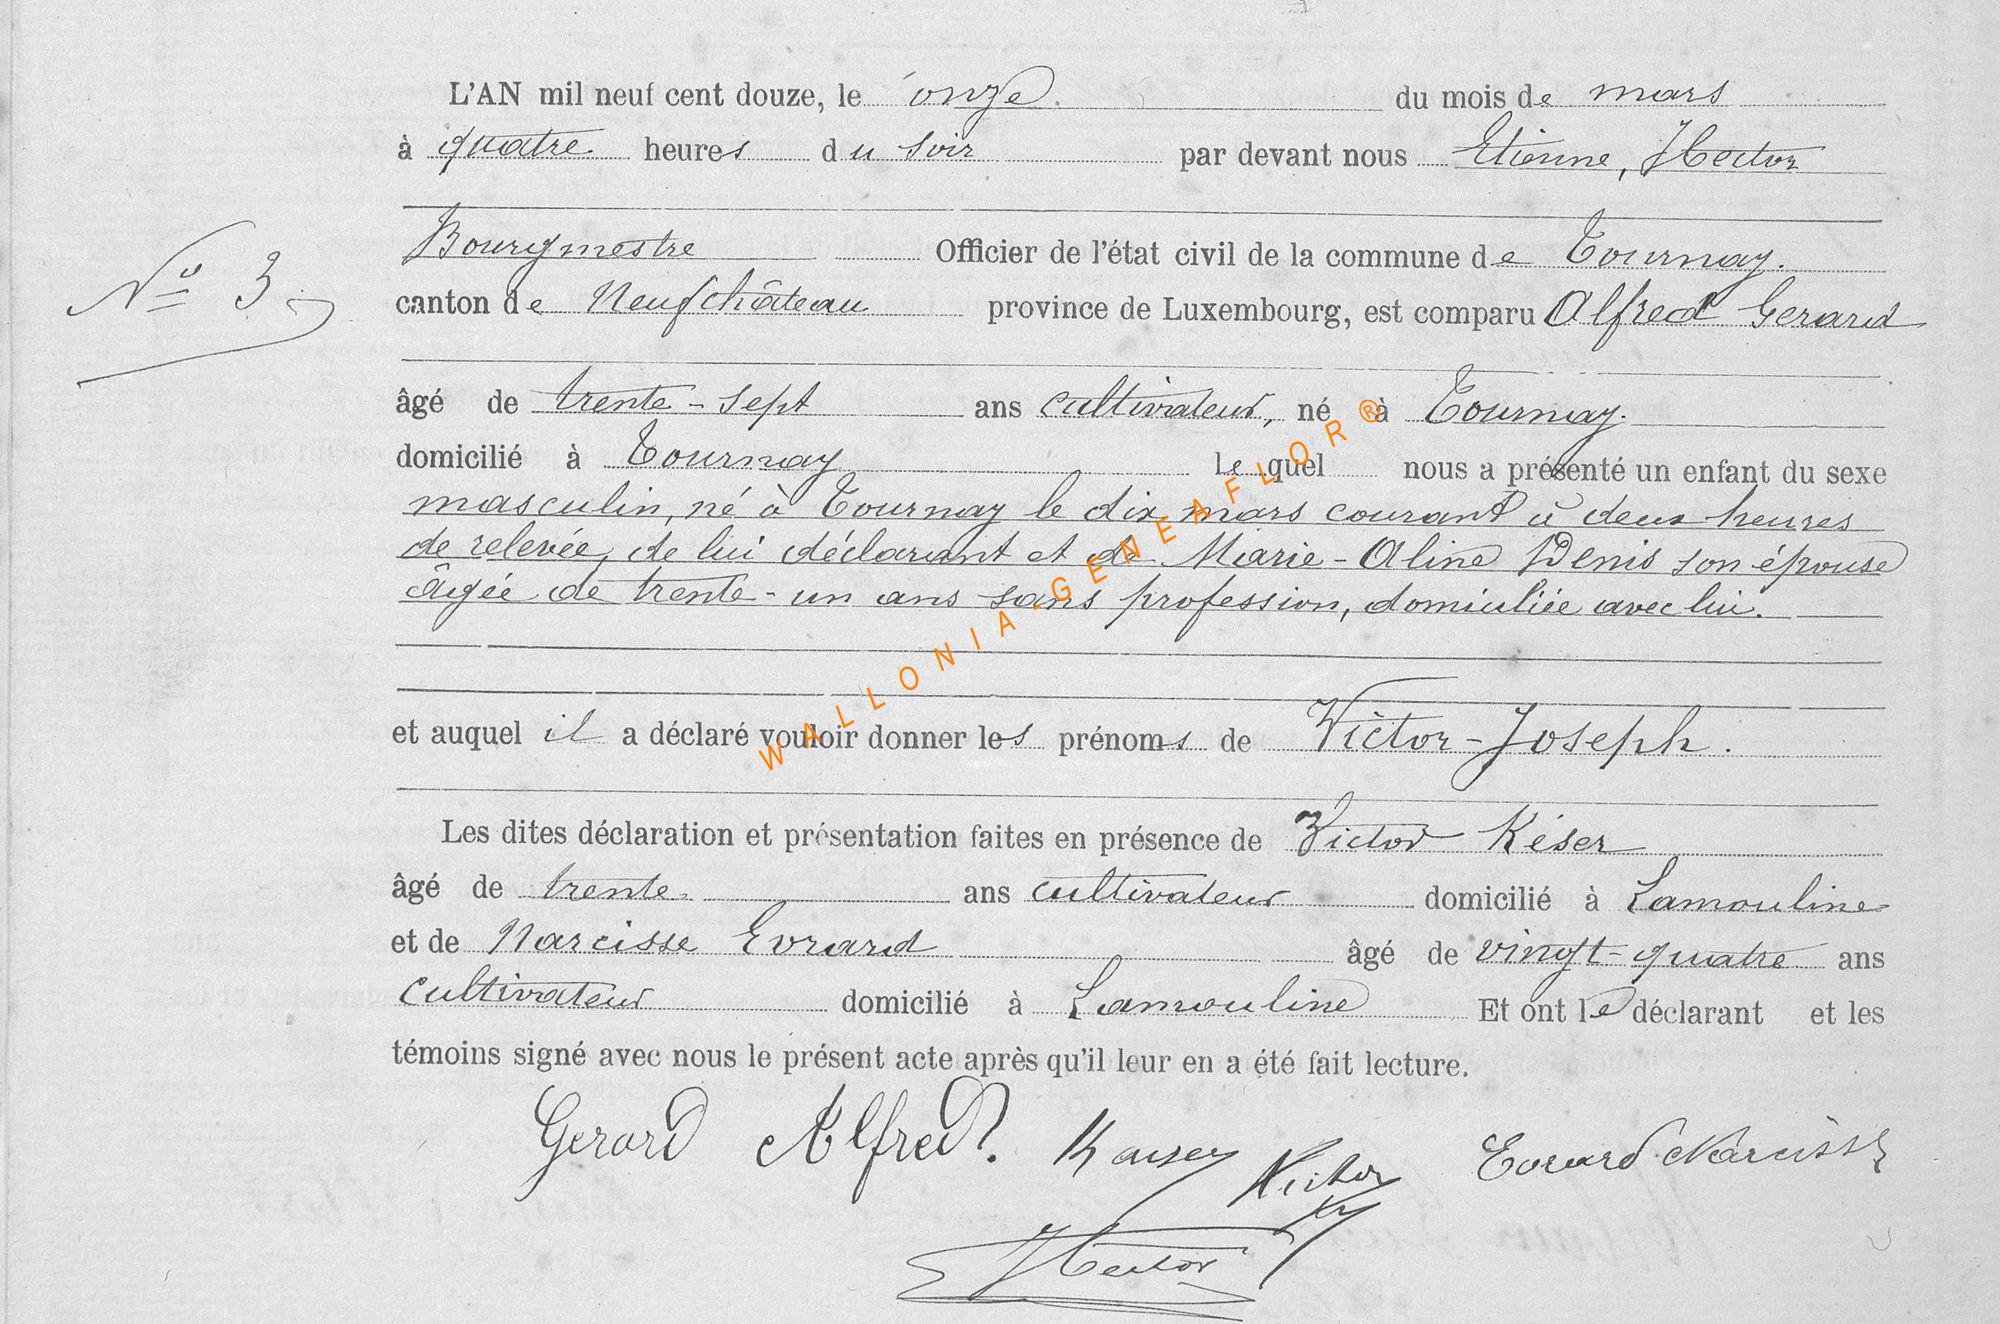 L'AN mil neuf cent douze, le onze du mois de mars
à quatre heures du soir par devant nous Etienne, Hector
Bourgmestre Officier de l'état civil de la commune de Tournay.
N° 3
canton de Neufchâteau province de Luxembourg, est comparu Alfred Gerard
âgé de trente-sept ans cultivateur, né à Tournay.
domicilié à Tournay lequel nous a présenté un enfant du sexe
masculin, né à Tournay le dix mars courant à deux heures
de relevée, de lui déclarant et de Marie-Aline Denis son épouse
âgée de trente-un ans sans profession, domiciliée avec lui.
et auquel il a déclaré vouloir donner les prénoms de Victor-Joseph.
Les dites déclaration et présentation faites en présence de Victor Késer
âgé de trente ans cultivateur domicilié à Lamouline
et de Narcisse Evrard âgé de vingt-quatre ans
cultivateur domicilié à Lamouline Et ont le déclarant et les
témoins signé avec nous le présent acte après qu'il leur en a été fait lecture.
Gerard Alfred. Kaiser Victor Evrard Narcisse
Hector
WALLONIA-GENEAFLOR®